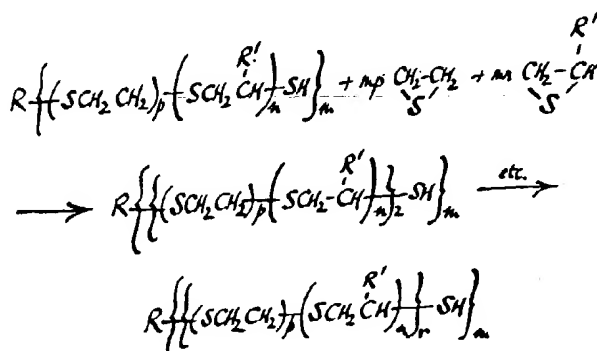 R{(SCH2CH2)p(SCH2CH)n-SH}m + mp CH2-CH2 + mn CH2-CH
R'
R'
S
S
⟶ R{{(SCH2CH2)p(SCH2-CH)n}2-SH}m etc. ⟶
R'
R{{(SCH2CH2)p(SCH2CH)n}r-SH}m
R'